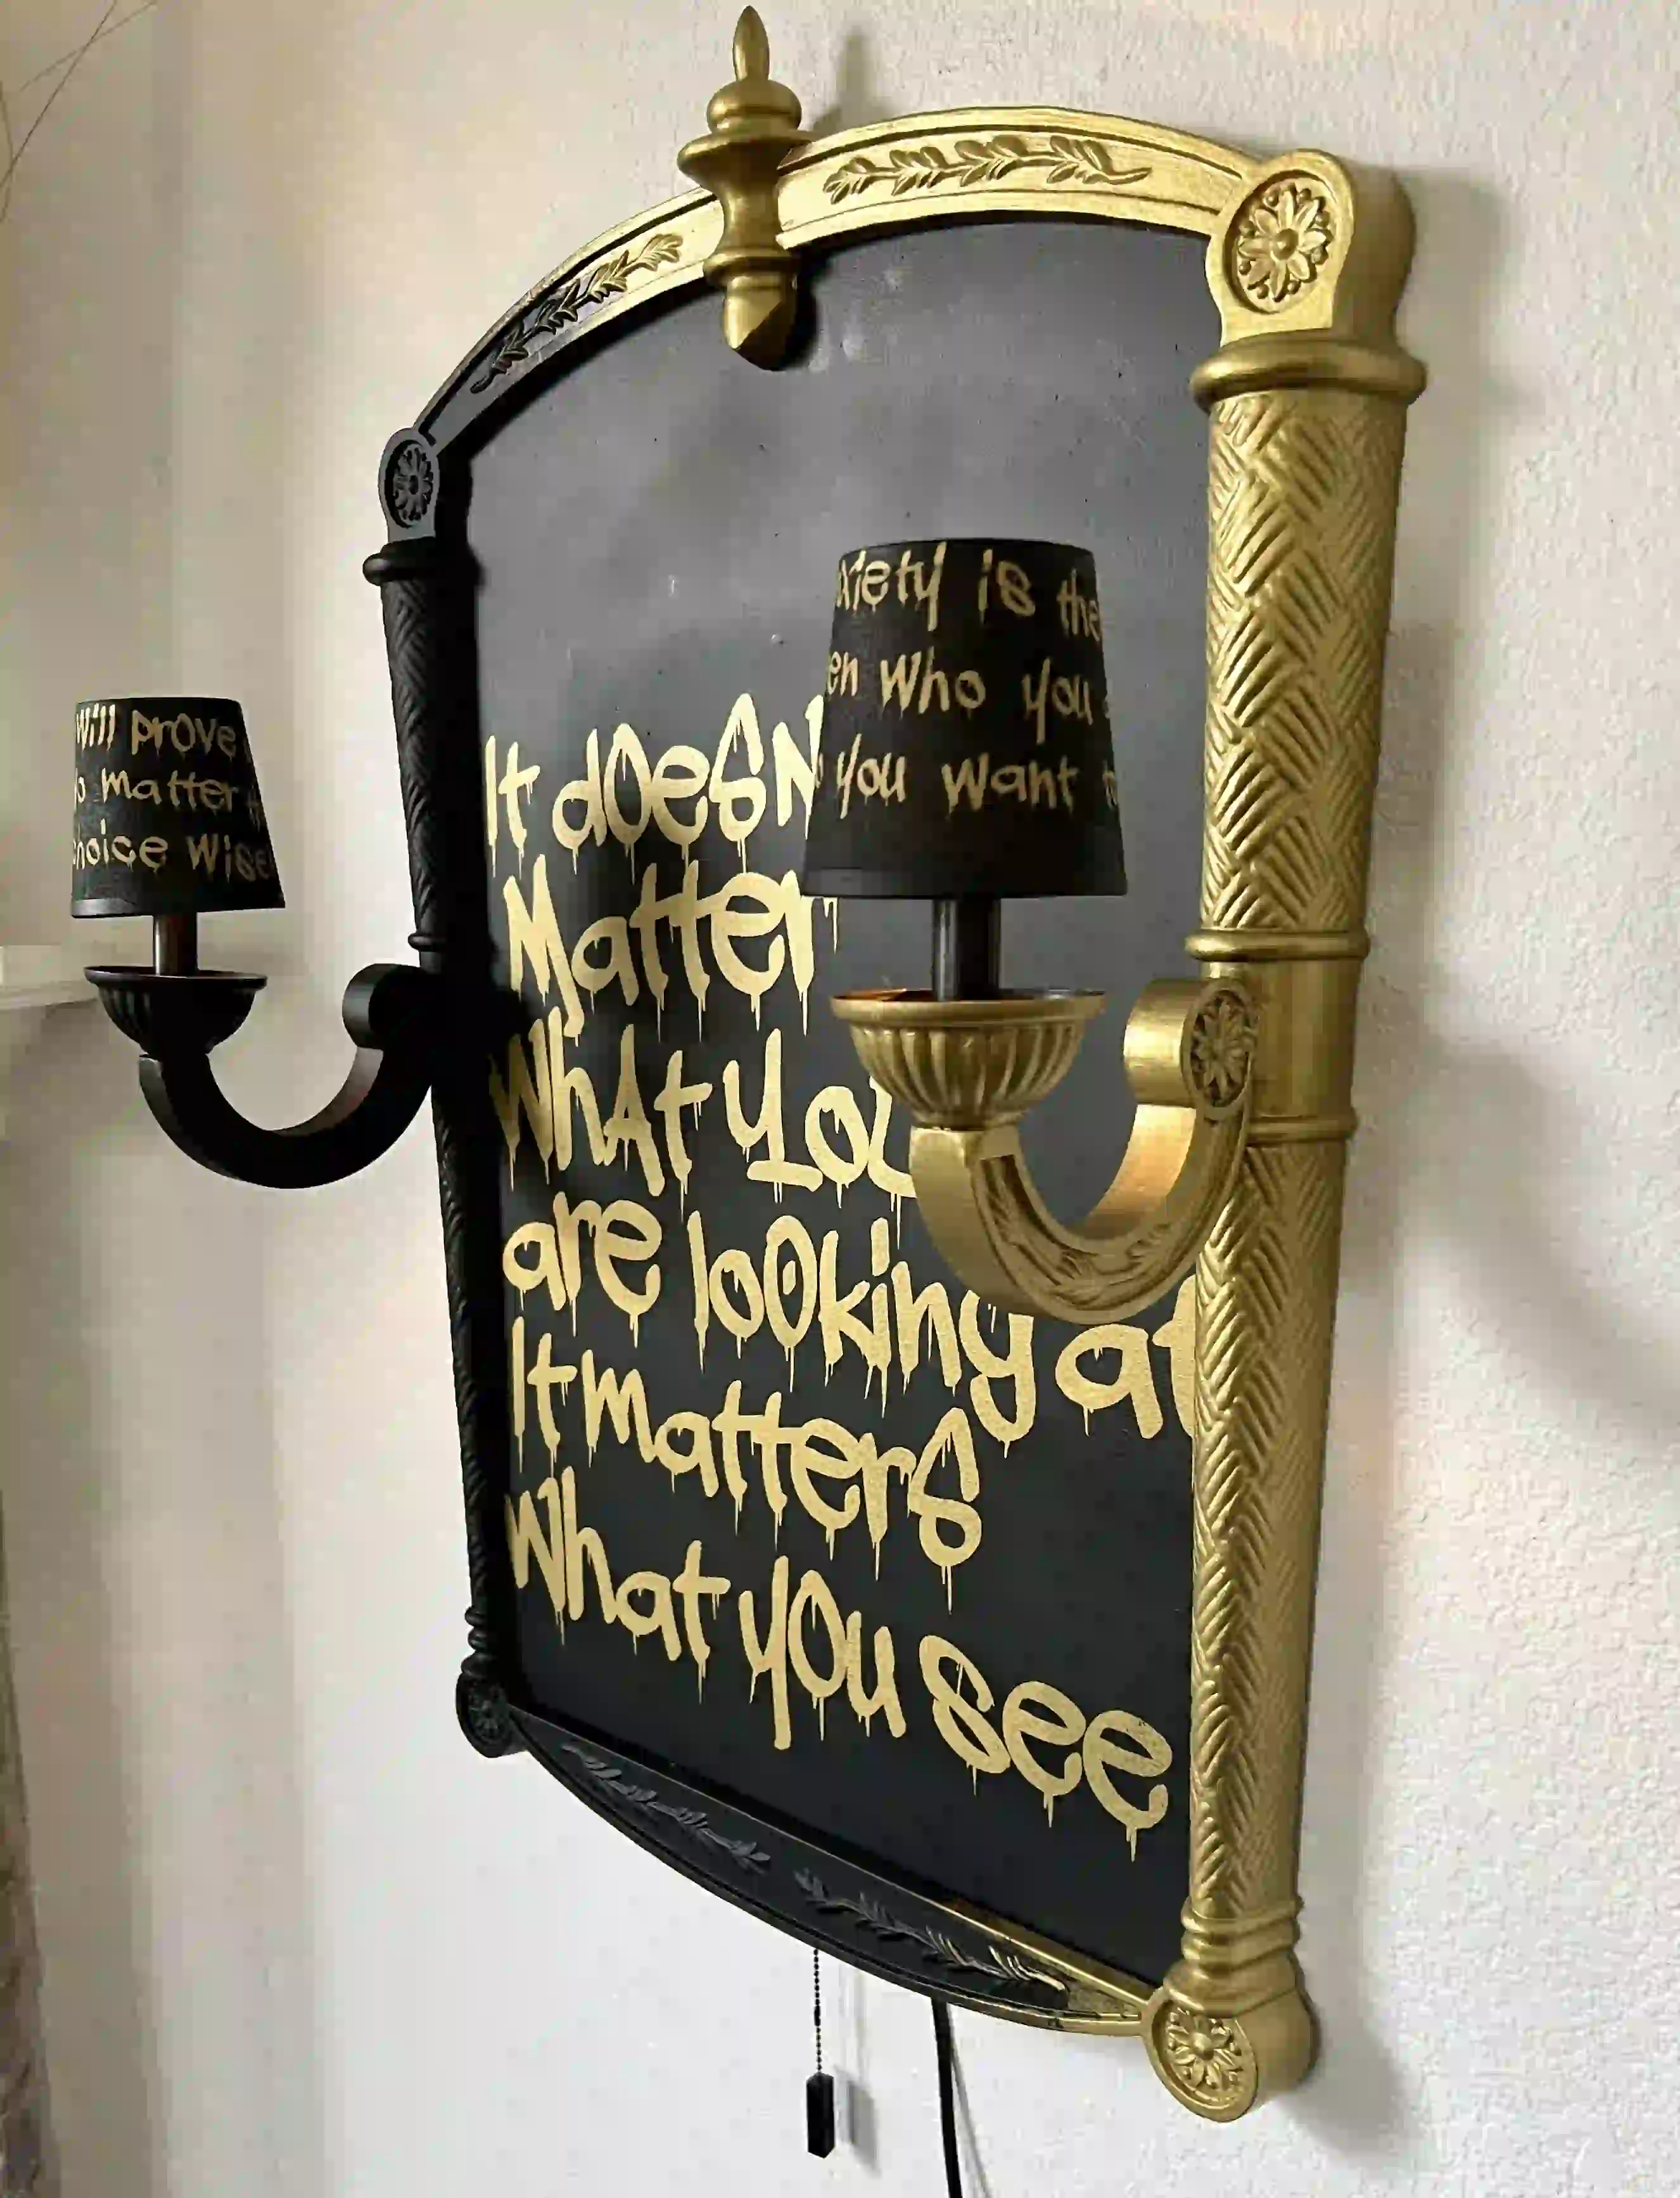 It doesN
Matter
WhAt you
are lo0king at
It matters
What you see
will prove
matter
choice Wise
xiety is the
en who you
you want